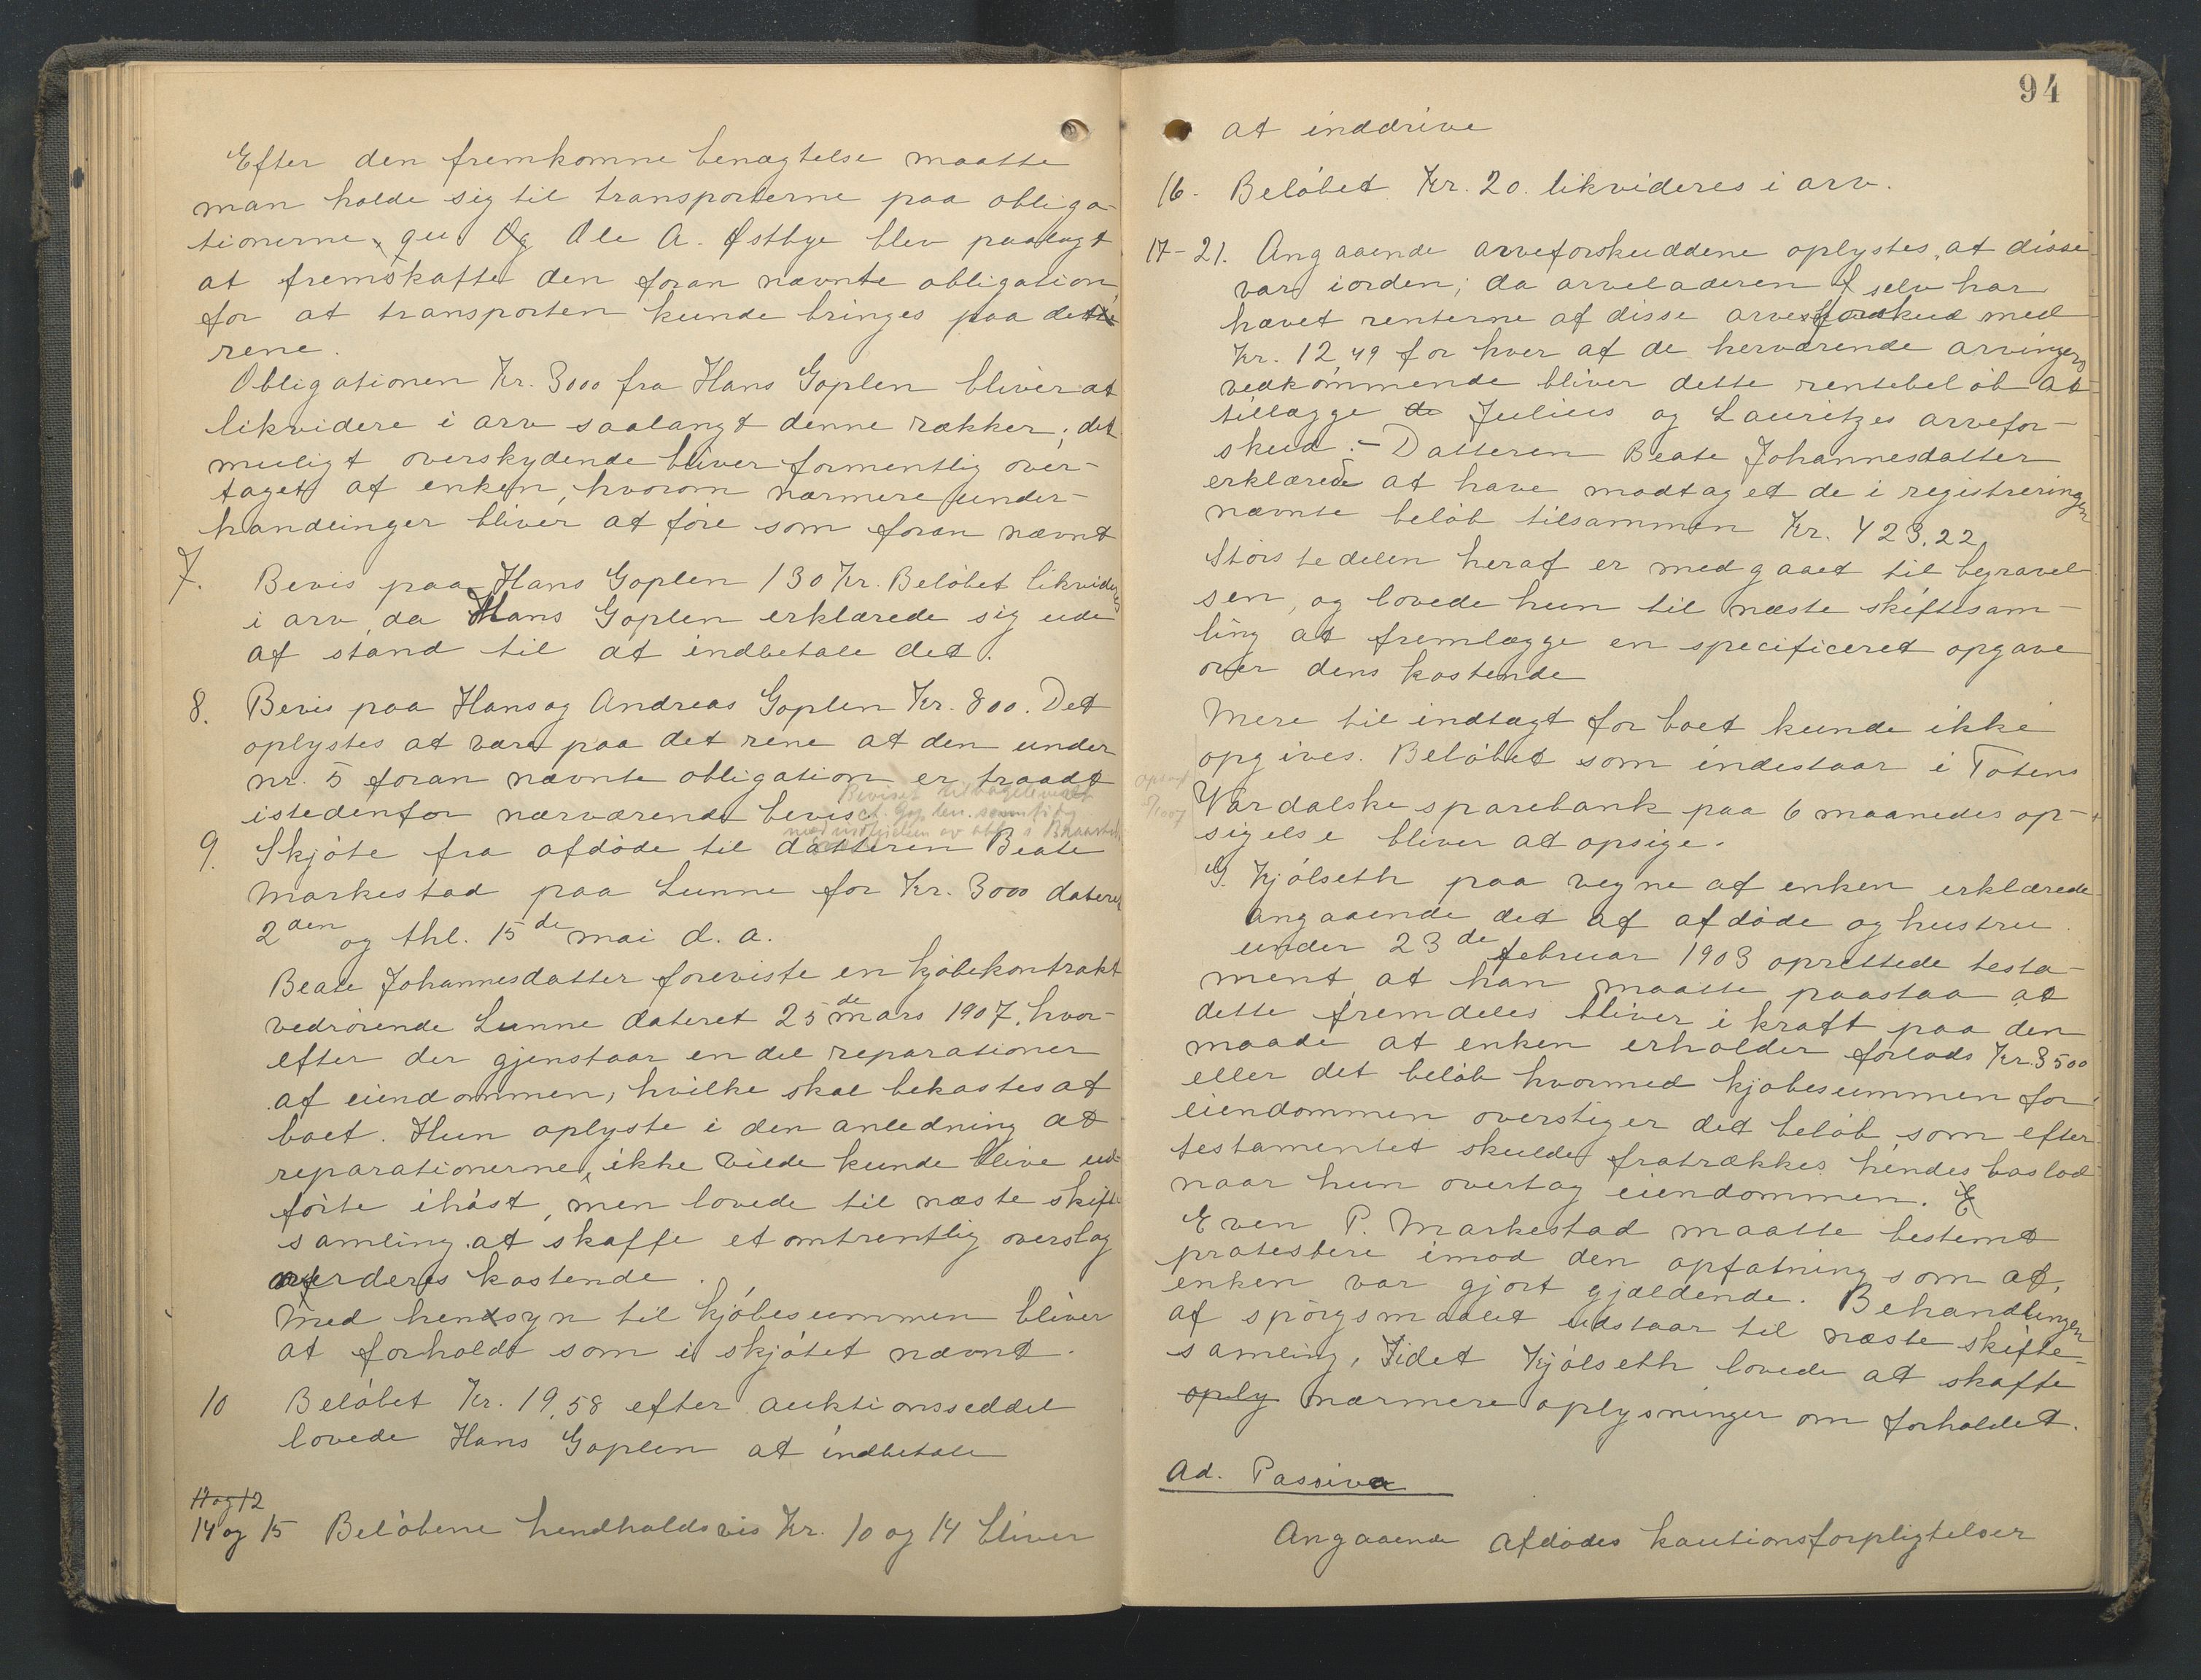 Efter den fremkomne benægtelse maatte
man holde sig til transporterne paa obliga-
tionerne, Ole A. Østbye blev paalagt
at fremskaffe den foran nævnte obligation,
for at transporten kunde bringes paa dette
rene.
Obligationen Kr. 3000 fra Hans Goplen bliver at
likvidere i arv saalangt denne rækker; det
muligt overskydende bliver formentlig over-
taget af enken, hvorom nærmere under-
handlinger bliver at føre som foran nævnt
7. Bevis paa Hans Goplen 130 Kr. Beløbet likvideres
i arv, da Hans Goplen erklærede sig ude
af stand til at indbetale det.
8. Bevis paa Hans og Andreas Goplen Kr. 800. Det
oplystes at være paa det rene at den under
nr. 5 foran nævnte obligation er traadt
Beviset tilbageleveret
istedenfor nærværende bevis
9. Skjøte fra afdøde til datteren Beate
Markestad paa Lunne for Kr. 3000 dateret
2den og thl. 15de mai d. a.
Beate Johannesdatter foreviste en kjøbekontrakt
vedrørende Lunne dateret 25de mars 1907, hvor-
efter der gjenstaar en del reparationer
af eiendommen, hvilke skal bekostes af
boet. Hun oplyste i den anledning at
reparationerne, ikke vilde kunde blive ud-
førte ihøst, men lovede til næste skifte-
samling at skaffe et omtrentlig overslag
over deres kostende.
Med hensyn til kjøbesummen bliver
at forholdt som i skjøtet nævnt.
10 Beløbet Kr. 19,58 efter auktionsseddel
lovede Hans Goplen at indbetale
11 og 12
14 og 15 Beløbene hendholdsvis Kr. 10 og 14 bliver
94
at inddrive
16. Beløbet Kr. 20. likvideres i arv.
17-21. Angaaende arveforskuddene oplystes, at disse
var iorden; da arveladeren selv har
hævet renterne af disse arveforskud med
Kr. 12,49 for hver af de herværende arvingers
vedkommende bliver dette rentebeløb at
tillægge de Julius og Lauritzes arvefor-
skud. - Datteren Beate Johannesdatter
erklærede at have modtaget de i registreringen
nævnte beløb tilsammen Kr. 423,22.
Størstedelen heraf er medgaaet til begravel-
sen, og lovede hun til næste skiftesam-
ling at fremlægge en specificeret opgave
over dens kostende
Mere til indtægt for boet kunde ikke
opgives. Beløbet som indestaar i Totens
Vardalske sparebank paa 6 maanedes op-
sigelse bliver at opsige.
G. Kjølseth paa vegne af enken erklærede
angaaende det af afdøde og hustru
under 23de februar 1903 oprettede testa-
ment at han maatte paastaa at
dette fremdeles bliver i kraft paa den
maade at enken erholder forlods Kr. 3500
eller det beløb hvormed kjøbesummen for
eiendommen overstiger det beløb, som efter
testamentet skulde fratrækkes hendes boslod
naar hun overtog eiendommen. E
Even P. Markestad maatte bestemt
protestere imod den opfatning som af
enken var gjort gjældende. Behandlingen
af spørgsmaalet udstaar til næste skifte-
samling, idet Kjølseth lovede at skaffe
oply nærmere oplysninger om forholdet.
Ad. Passiva
Angaaende Afdødes kautionsforpligtelser